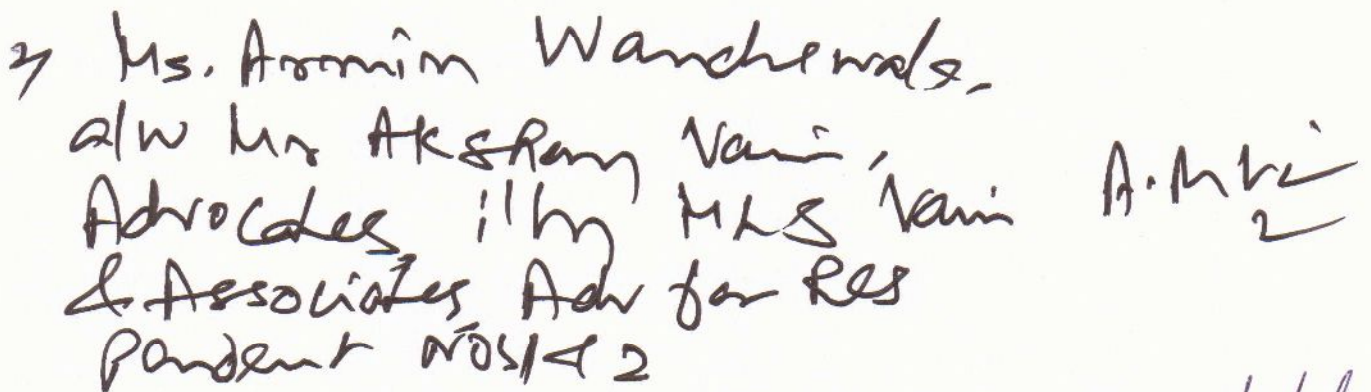 2) Ms. Armin Wandrewala,
a/w Mr Akshay Vani,
Advocates, i/by M/s Vani
& Associates, Adv for Res
pondent Nos 1 & 2